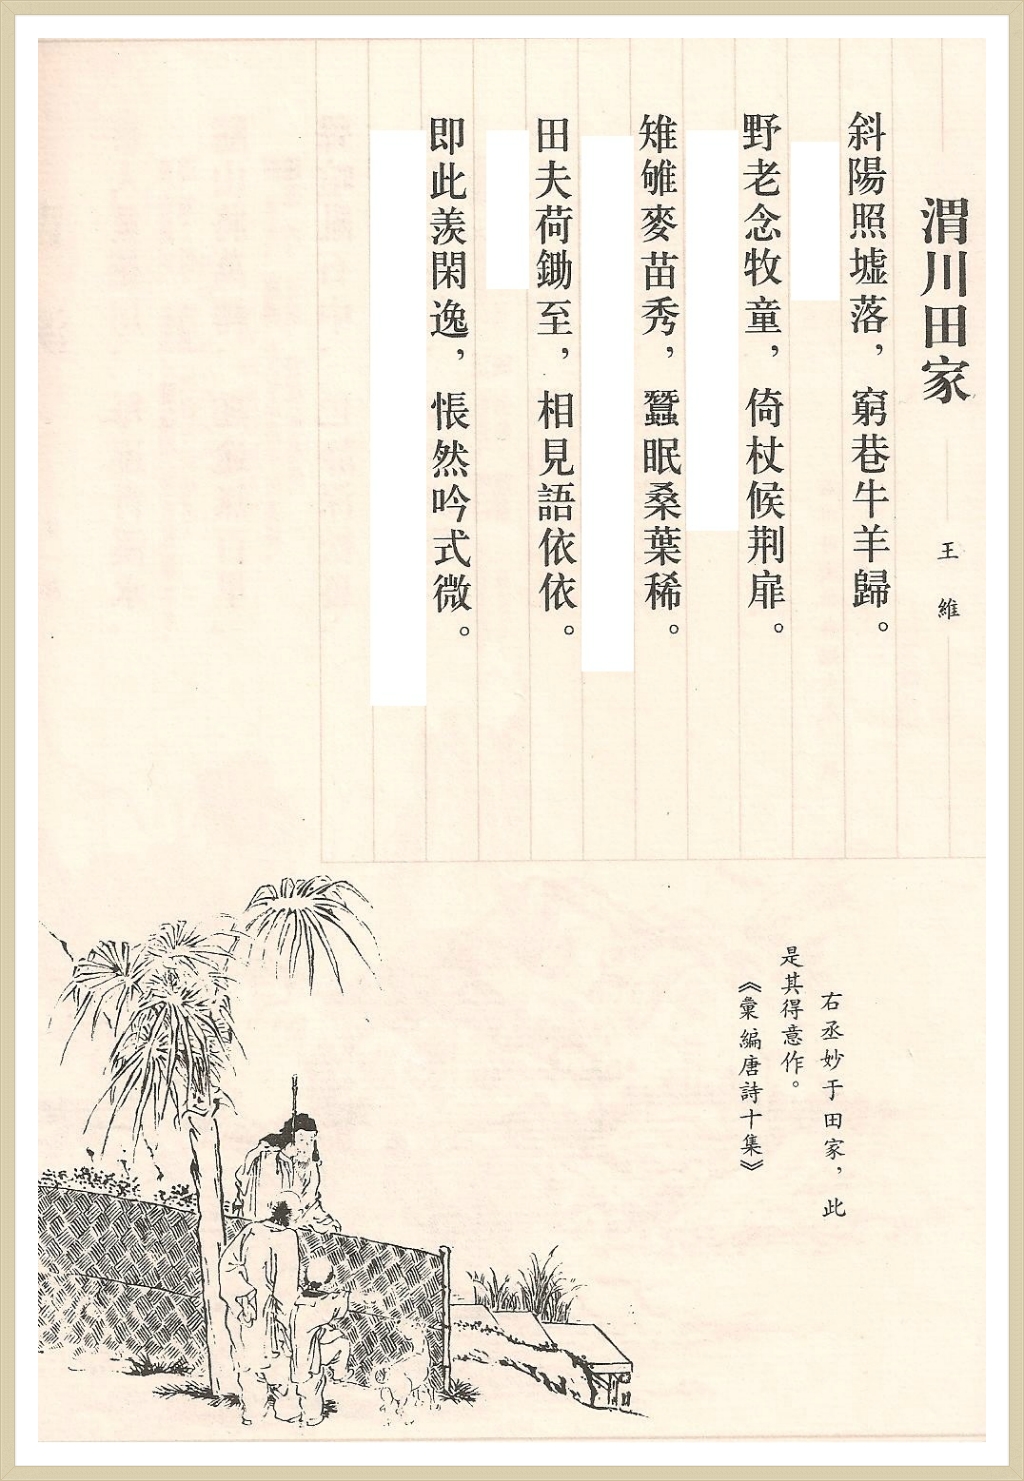 渭川田家
王維
斜陽照墟落，窮巷牛羊歸。
野老念牧童，倚杖候荆扉。
雉雊麥苗秀，蠶眠桑葉稀。
田夫荷鋤至，相見語依依。
即此羨閑逸，悵然吟式微。
右丞妙于田家，此
是其得意作。
《彙編唐詩十集》